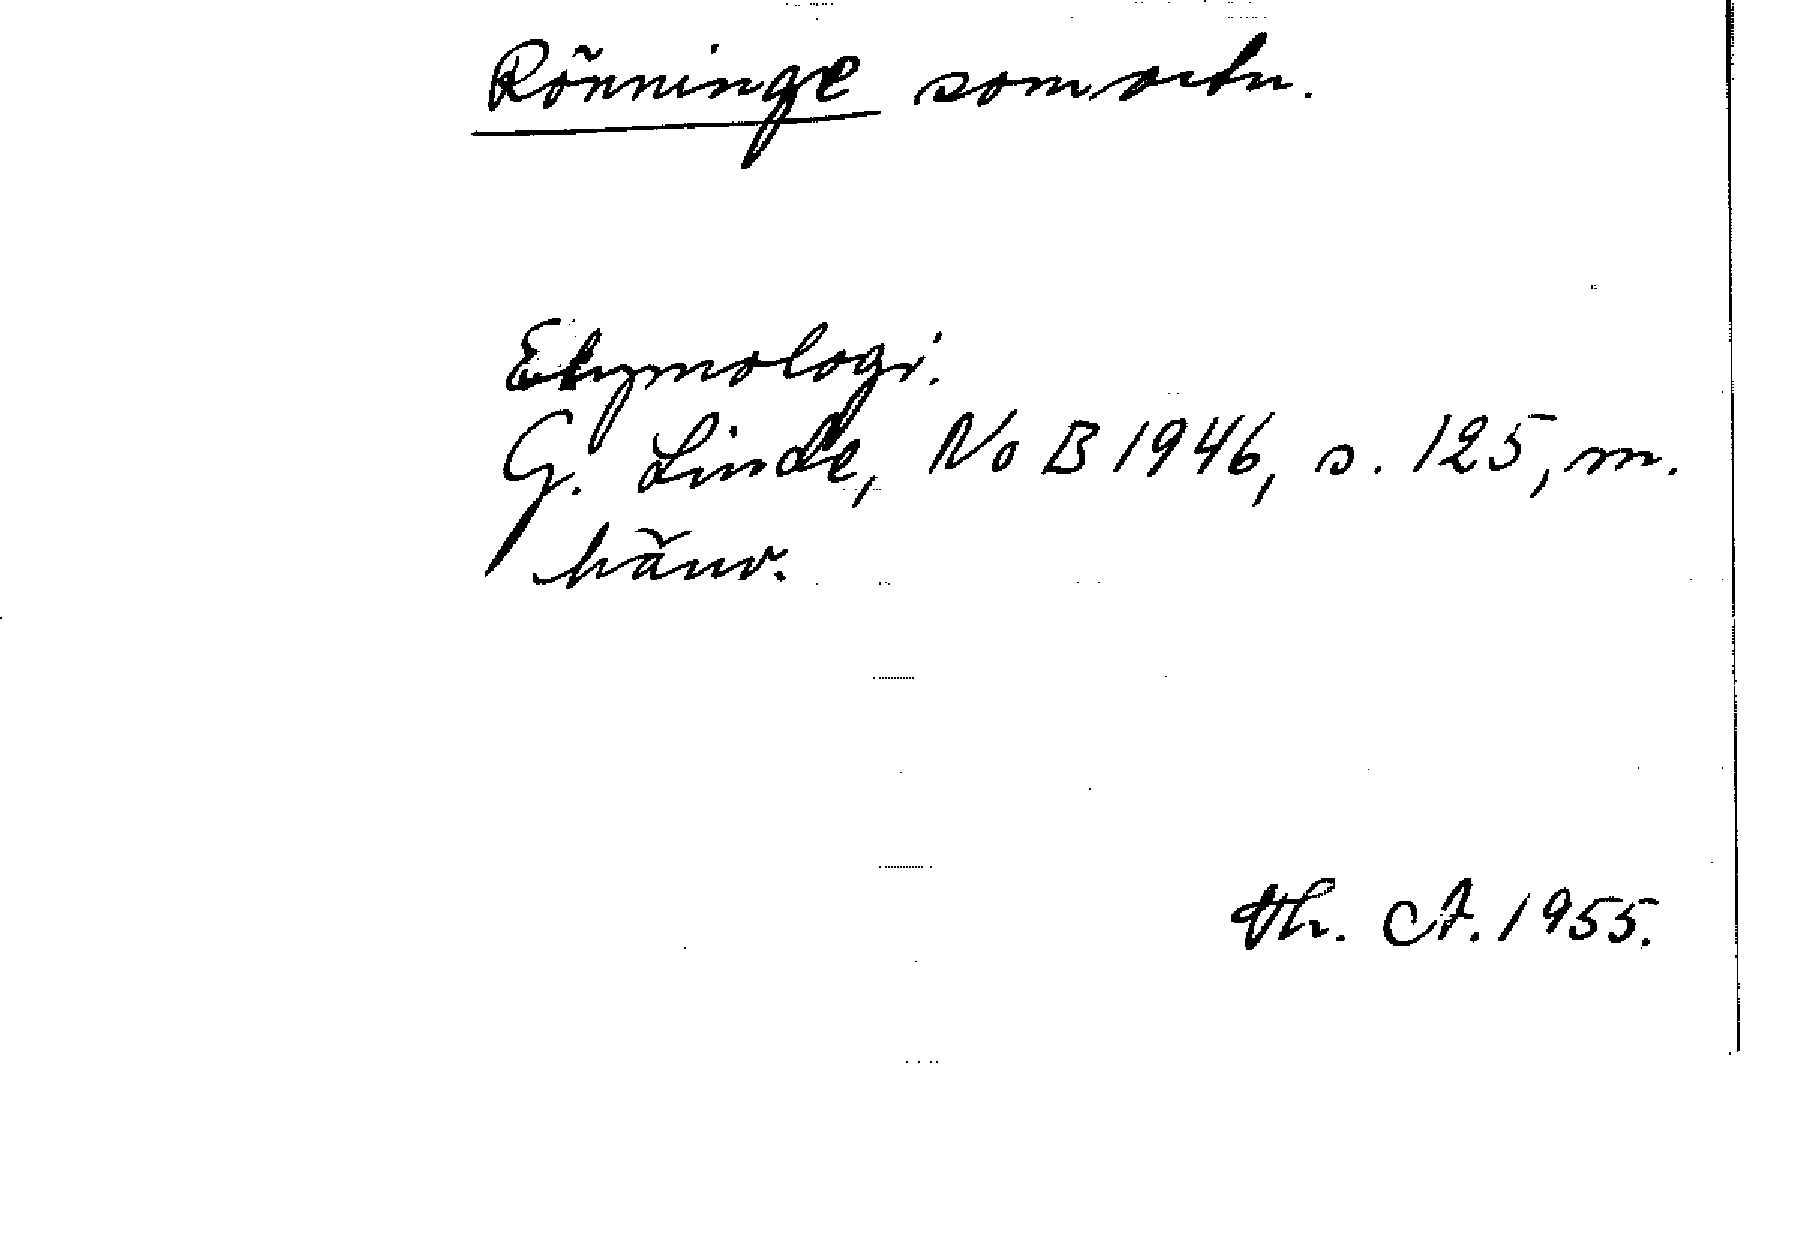 Rönninge som ortn.
Etymologi.
G. Linde, NoB 1946, s. 125, m.
hänv.
Th. A. 1955.